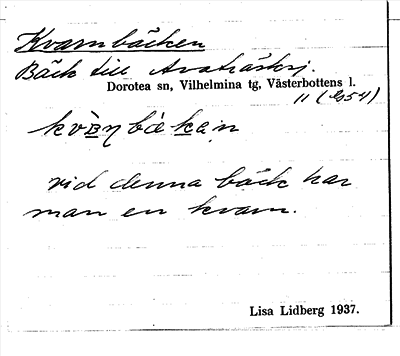 Kvarnbäcken
Bäck till Avaträsksj.
Dorotea sn, Vilhelmina tg, Västerbottens l.
11 (
vid denna bäck har
man en kvarn.
Lisa Lidberg 1937.